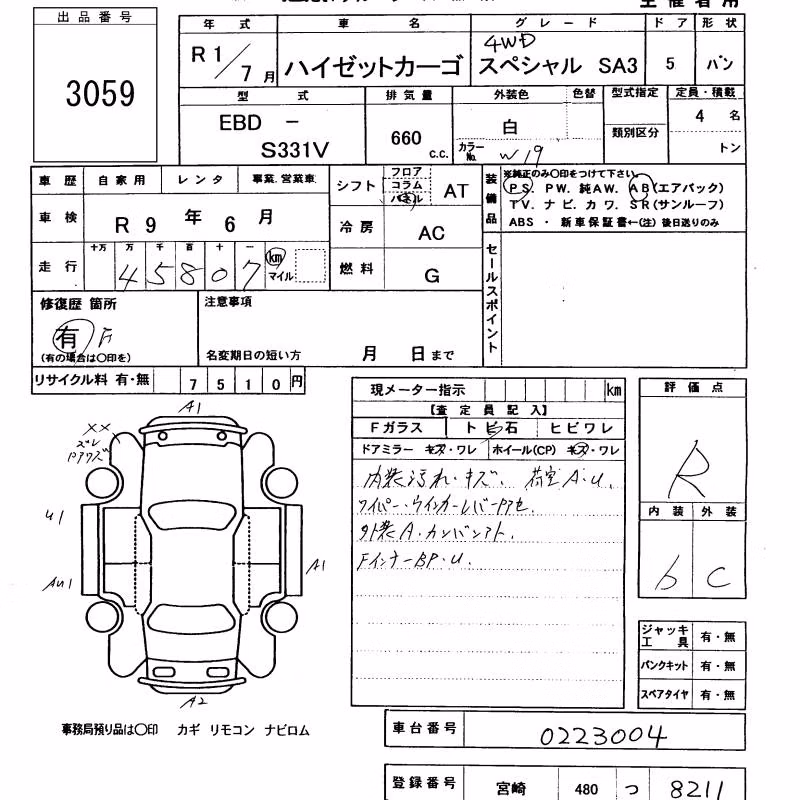 主催者用
出品番号
3059
年式 車名 グレード ドア 形状
R1/7月 ハイゼットカーゴ 4WD スペシャル SA3 5 バン
型式 排気量 外装色 色替 型式指定 定員・積載
EBD - S331V 660 c.c. 白 カラーNo. W19 類別区分 4名 トン
車歴 自家用 レンタ 事業.営業車
シフト フロア コラム パネル AT
装備品 ※純正のみ〇印をつけて下さい。
PS. PW. 純AW. AB(エアバック)
TV. ナビ. カワ. SR(サンルーフ)
ABS ・ 新車保証書←(注) 後日送りのみ
車検 R 9 年 6 月
冷房 AC
走行 十万 万 千 百 十 一
4 5 8 0 7 km マイル
燃料 G
セールスポイント
修復歴 箇所
有 F
(有の場合は〇印を)
注意事項
名変期日の短い方 月 日まで
リサイクル料 有・無 7 5 1 0 円
現メーター指示 km
【査定員記入】
Fガラス トビ石 ヒビワレ
ドアミラー キズ・ワレ ホイール(CP) キズ・ワレ
内装汚れ・キズ. 荷室A・U.
ワイパー・ウインカーレバー
外装A・カンバンアト.
FインナーBP・U.
評価点
R
内装 外装
b C
A1
XX
ズレ
U1
AU1
A1
A2
ジャッキ工具 有・無
パンクキット 有・無
スペアタイヤ 有・無
事務局預り品は〇印 カギ リモコン ナビロム
車台番号 0223004
登録番号 宮崎 480 つ 8211